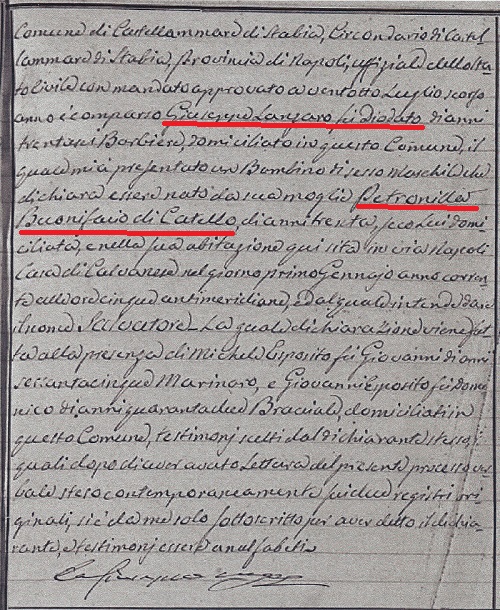 Comune di Castellammare di Stabia, Circondario di Castel
lammare di Stabia, Provincia di Napoli, uffiziale dello sta
to Civile con mandato approvato a ventotto Luglio scorso
anno è comparso Giuseppe Langaro fu Diodato di anni
trentasei Barbiere domiciliato in questo Comune, il
quale mi à presentato un Bambino di sesso Maschile che
dichiara essere nato da sua moglie Petronilla
Buonifacio di Catello, di anni trenta, seco lui domi-
ciliata, e nella sua abitazione qui sita in via Napoli
Casa di Calvanese nel giorno primo Gennajo anno corren
te alle ore cinque antimeridiane, ed al quale intende dare
il nome Salvatore_ La quale dichiarazione viene fat
ta alla presenza di Michele Esposito fu Giovanni di anni
sessantacinque Marinaro, e Giovanni Esposito fu Dome
nico di anni quarantadue Bracciale, domiciliati in
questo Comune, testimonj scelti dal dichiarante stesso, i
quali dopo di aver avuto lettura del presente processo ver
bale steso contemporaneamente sui due registri ori
ginali, si è da me solo sottoscritto per aver detto il dichia
rante, e testimonj essere analfabeti_